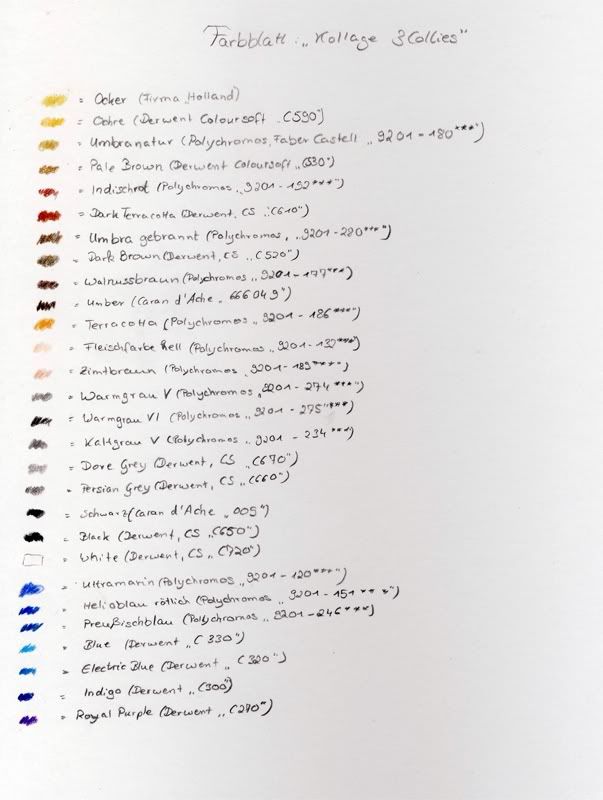 Farbblatt: „Kollage 3 Collies"
= Ocker (Firma „Holland)
= Ochre (Derwent Coloursoft „C590")
= Umbranatur (Polychromos, Faber Castell „9201-180***")
= Pale Brown (Derwent Coloursoft „C530")
= Indischrot (Polychromos „9201-192***")
= Dark Terracotta (Derwent, CS „C610")
= Umbra gebrannt (Polychromos, „9201-280***")
= Dark Brown (Derwent, CS „C520")
= Walnussbraun (Polychromos „9201-177***")
= Umber (Caran d'Ache „666049")
= Terracotta (Polychromos „9201-186***")
= Fleischfarbe hell (Polychromos „9201-132***")
= Zimtbraun (Polychromos „9201-189***")
= Warmgrau V (Polychromos „9201-274***")
= Warmgrau VI (Polychromos „9201-275***")
= Kaltgrau V (Polychromos „9201-234***")
= Dove Grey (Derwent, CS „C670")
= Persian Grey (Derwent, CS „C660")
= Schwarz (Caran d'Ache „009")
= Black (Derwent, CS „C650")
= White (Derwent, CS „C720")
= Ultramarin (Polychromos „9201-120***")
= Helioblau rötlich (Polychromos „9201-151***")
= Preußischblau (Polychromos „9201-246***)
= Blue (Derwent „C330")
= Electric Blue (Derwent „C320")
= Indigo (Derwent „C300")
= Royal Purple (Derwent „C270")